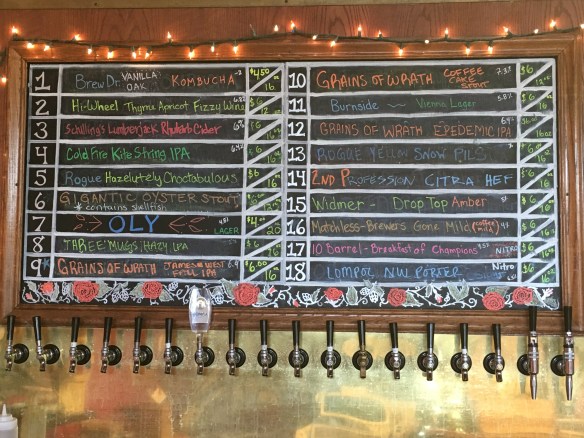 1 BrewDr. VANILLA OAK KOMBUCHA $4.50 16
2 Hi-Wheel Thyme Apricot Fizzy Wine $6 12
3 Schilling's Lumberjack Rhubarb Cider 6% $6 16
4 Cold Fire Kite String IPA $6 16
5 Rogue Hazelutely Choctabulous $6 16
6 GIGANTIC OYSTER STOUT
* contains shellfish
7 OLY LAGER 20
8 THREE MUGS HAZY IPA $6 16
9 * GRAINS OF WRATH JAMES WEST FULL IPA 6.9 16
10 GRAINS OF WRATH COFFEE CAKE STOUT $6
11 Burnside ~ Vienna Lager 5.8% $6 16
12 GRAINS OF WRATH EPEDEMIC IPA $6 16
13 ROGUE YELLOW SNOW PILS $6
14 2ND PROFESSION CITRA HEF $6 16
15 Widmer - Drop Top Amber $6 16
16 Matchless-Brewers Gone Mild (coffee mild) $6 16
17 10 Barrel - Breakfast of Champions NITRO $6 16
18 LOMPOC NU PORTER Nitro $6 16